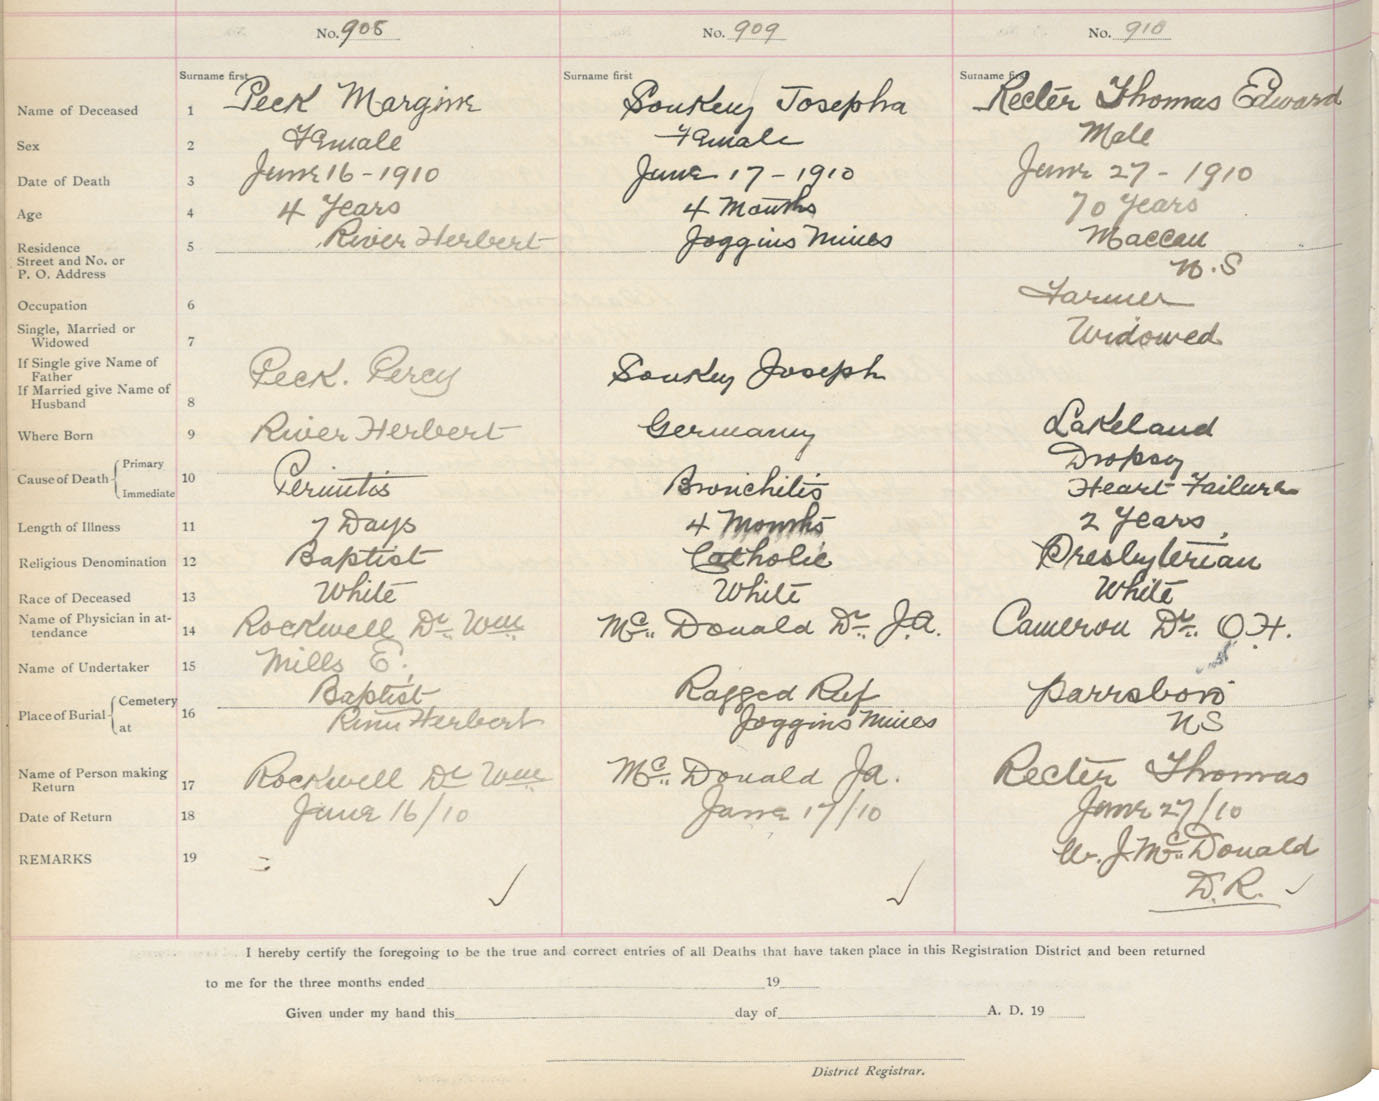 No. 908 No. 909 No. 910
Surname first Surname first Surname first
Name of Deceased 1 Peck Margine Soukey Josepha Recter Thomas Edward
Sex 2 Female Female Male
Date of Death 3 June 16 - 1910 June 17 - 1910 June 27 - 1910
Age 4 4 Years 4 Months 70 Years
Residence 5 River Herbert Joggins Mines Maccan
Street and No. or
P. O. Address N.S
Occupation 6 Farmer
Single, Married or
Widowed 7 Widowed
If Single give Name of
Father Peck. Percy Soukey Joseph
If Married give Name of
Husband 8
Where Born 9 River Herbert Germany Lakeland
Primary Dropsy
Cause of Death 10 Bronchitis Heart Failure
Immediate
Length of Illness 11 7 Days 4 Months 2 Years
Religious Denomination 12 Baptist Catholic Presbyterian
Race of Deceased 13 White White White
Name of Physician in at-
tendance 14 Rockwell Dr. Wm Mc. Donald Dr. J.A. Cameron Dr. O.H.
Name of Undertaker 15 Mills E.
Cemetery Baptist Ragged Ref Parrsboro
Place of Burial 16
at River Herbert Joggins Mines NS
Name of Person making
Return 17 Rockwell Dr Wm Mc. Donald Ja. Recter Thomas
Date of Return 18 June 16/10 June 17/10 June 27/10
REMARKS 19 W. J. Mc. Donald
D.R.
I hereby certify the foregoing to be the true and correct entries of all Deaths that have taken place in this Registration District and been returned
to me for the three months ended 19
Given under my hand this day of A. D. 19
District Registrar.